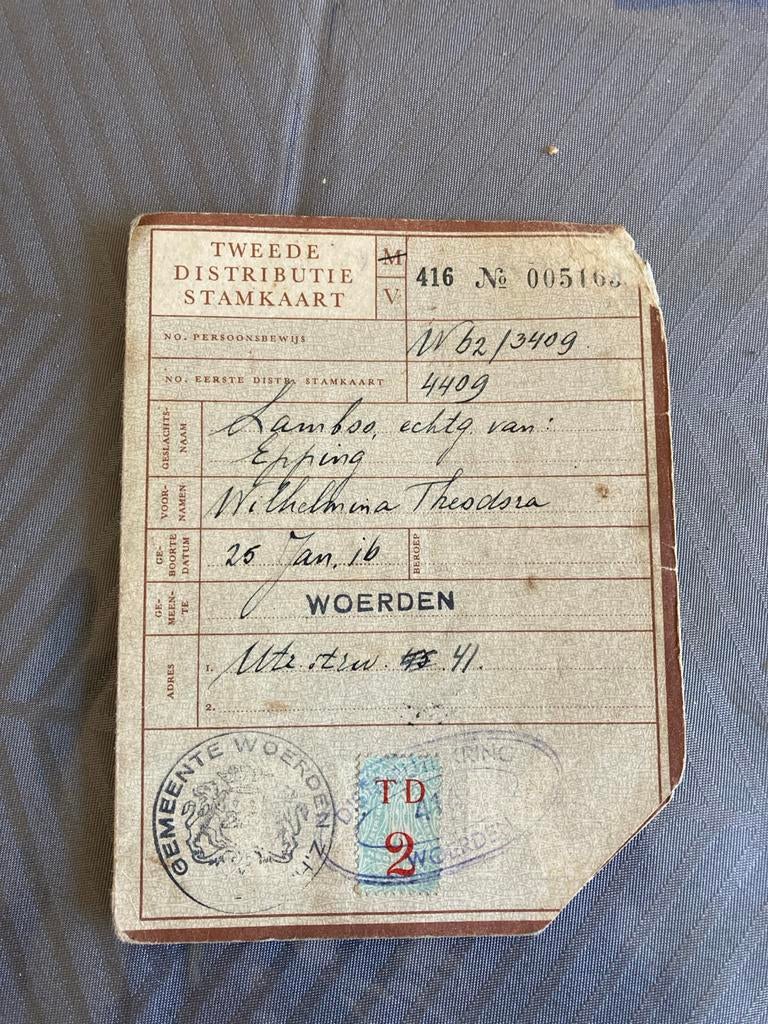 TWEEDE
DISTRIBUTIE
STAMKAART
M
V
416 № 005163
NO. PERSOONSBEWIJS
W 62/3409
NO. EERSTE DISTR. STAMKAART
4409
GESLACHTS-
NAAM
Lamboo, echtg van:
Epping
VOOR-
NAMEN
Wilhelmina Theodora
GE-
BOORTE
DATUM
25 Jan. 16
BEROEP
GE-
MEEN-
TE
WOERDEN
ADRES
1.
41.
2.
GEMEENTE WOERDEN Z.H.
TD
2
KRING
WOERDEN